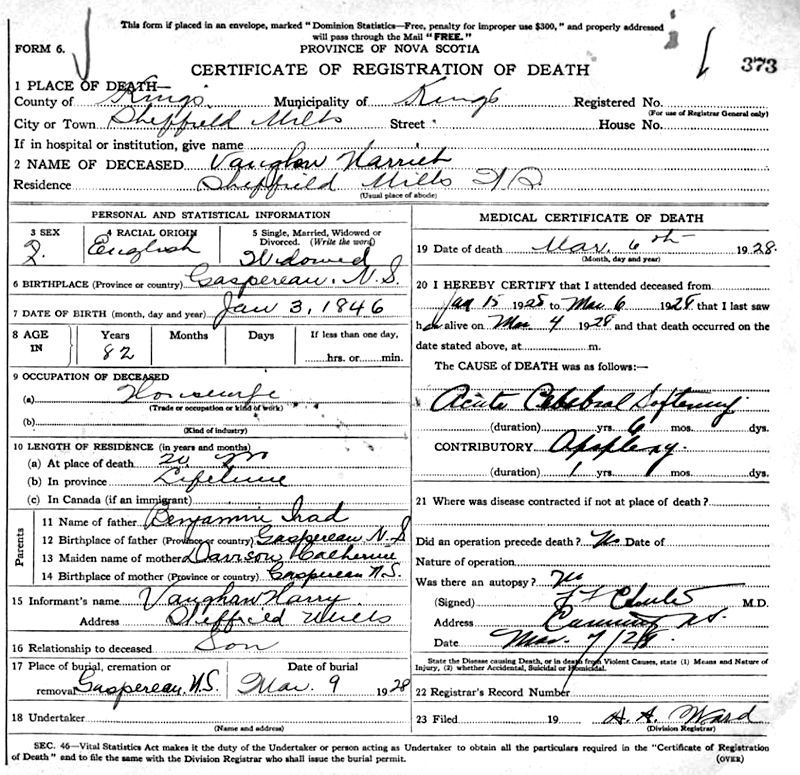 This form if placed in an envelope, marked "Dominion Statistics—Free, penalty for improper use $300," and properly addressed
will pass through the Mail "FREE."
FORM 6.
PROVINCE OF NOVA SCOTIA
CERTIFICATE OF REGISTRATION OF DEATH
373
1 PLACE OF DEATH—
County of Kings Municipality of Kings Registered No.
(For use of Registrar General only)
City or Town Sheffield Mills Street House No.
If in hospital or institution, give name
2 NAME OF DECEASED Vaughan Harriet
Residence Sheffield Mills N S.
(Usual place of abode)
PERSONAL AND STATISTICAL INFORMATION
3 SEX 4 RACIAL ORIGIN 5 Single, Married, Widowed or
Divorced. (Write the word)
English Widowed
6 BIRTHPLACE (Province or country) Gaspereau, N.S.
7 DATE OF BIRTH (month, day and year) Jan 3, 1846
8 AGE IN Years Months Days If less than one day,
82 hrs. or min.
9 OCCUPATION OF DECEASED
(a) Housewife
(Trade or occupation or kind of work)
(b)
(Kind of industry)
10 LENGTH OF RESIDENCE (in years and months)
(a) At place of death
(b) In province Lifetime
(c) In Canada (if an immigrant)
Parents
11 Name of father Benjamin
12 Birthplace of father (Province or country) Gaspereau N S
13 Maiden name of mother Davison Catherine
14 Birthplace of mother (Province or country) Gaspereau N.S.
15 Informant's name Vaughan Harry
Address Sheffield Mills
16 Relationship to deceased Son
17 Place of burial, cremation or Date of burial
removal Gaspereau, N.S. Mar. 9 1928
18 Undertaker
(Name and address)
MEDICAL CERTIFICATE OF DEATH
19 Date of death Mar. 6th 1928.
(Month, day and year)
20 I HEREBY CERTIFY that I attended deceased from
Jan 15 1928 to Mar 6 1928 that I last saw
h alive on Mar 4 1928 and that death occurred on the
date stated above, at m.
The CAUSE of DEATH was as follows:—
Acute Cerebral Softening
(duration) yrs. 6 mos. dys.
CONTRIBUTORY Apoplexy.
(duration) 1 yrs. mos. dys.
21 Where was disease contracted if not at place of death?
Did an operation precede death? No Date of
Nature of operation
Was there an autopsy? No
(Signed) M.D.
Address Canning NS.
Date Mar. 7/28.
State the Disease causing Death, or in death from Violent Causes, state (1) Means and Nature of
Injury, (2) whether Accidental, Suicidal or Homicidal.
22 Registrar's Record Number
23 Filed 19 H. A. Ward
(Division Registrar)
SEC. 46—Vital Statistics Act makes it the duty of the Undertaker or person acting as Undertaker to obtain all the particulars required in the "Certificate of Registration
of Death" and to file the same with the Division Registrar who shall issue the burial permit. (OVER)